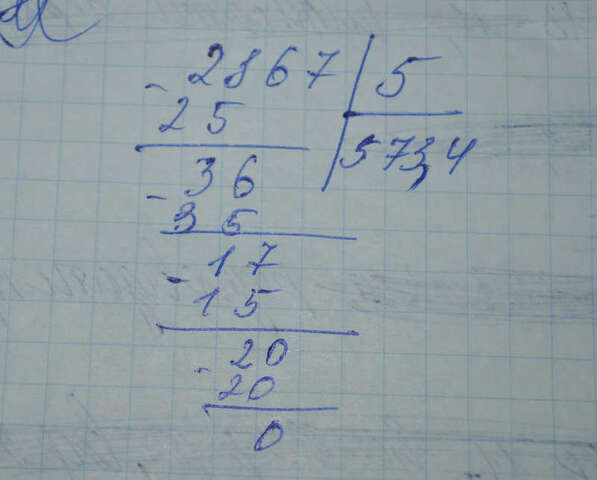 - 2867 | 5
25 | 573,4
- 36
35
- 17
15
- 20
20
0